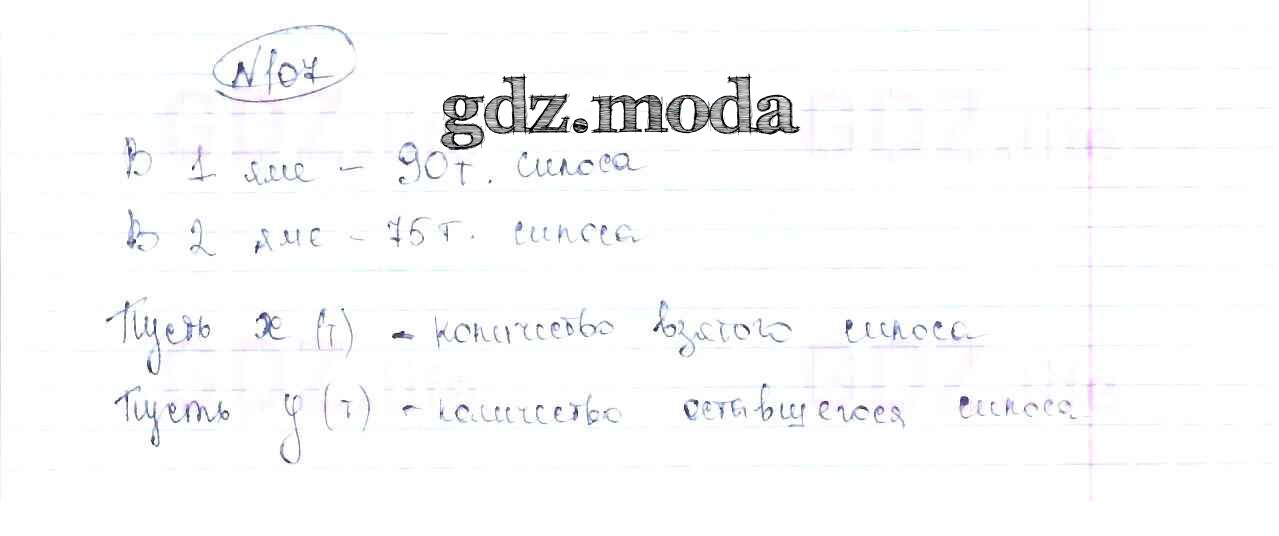 №107
gdz.moda
В 1 яме - 90т. силоса
В 2 яме - 75т. силоса
Пусть x (т) - количество взятого силоса
Пусть y (т) - количество оставшегося силоса